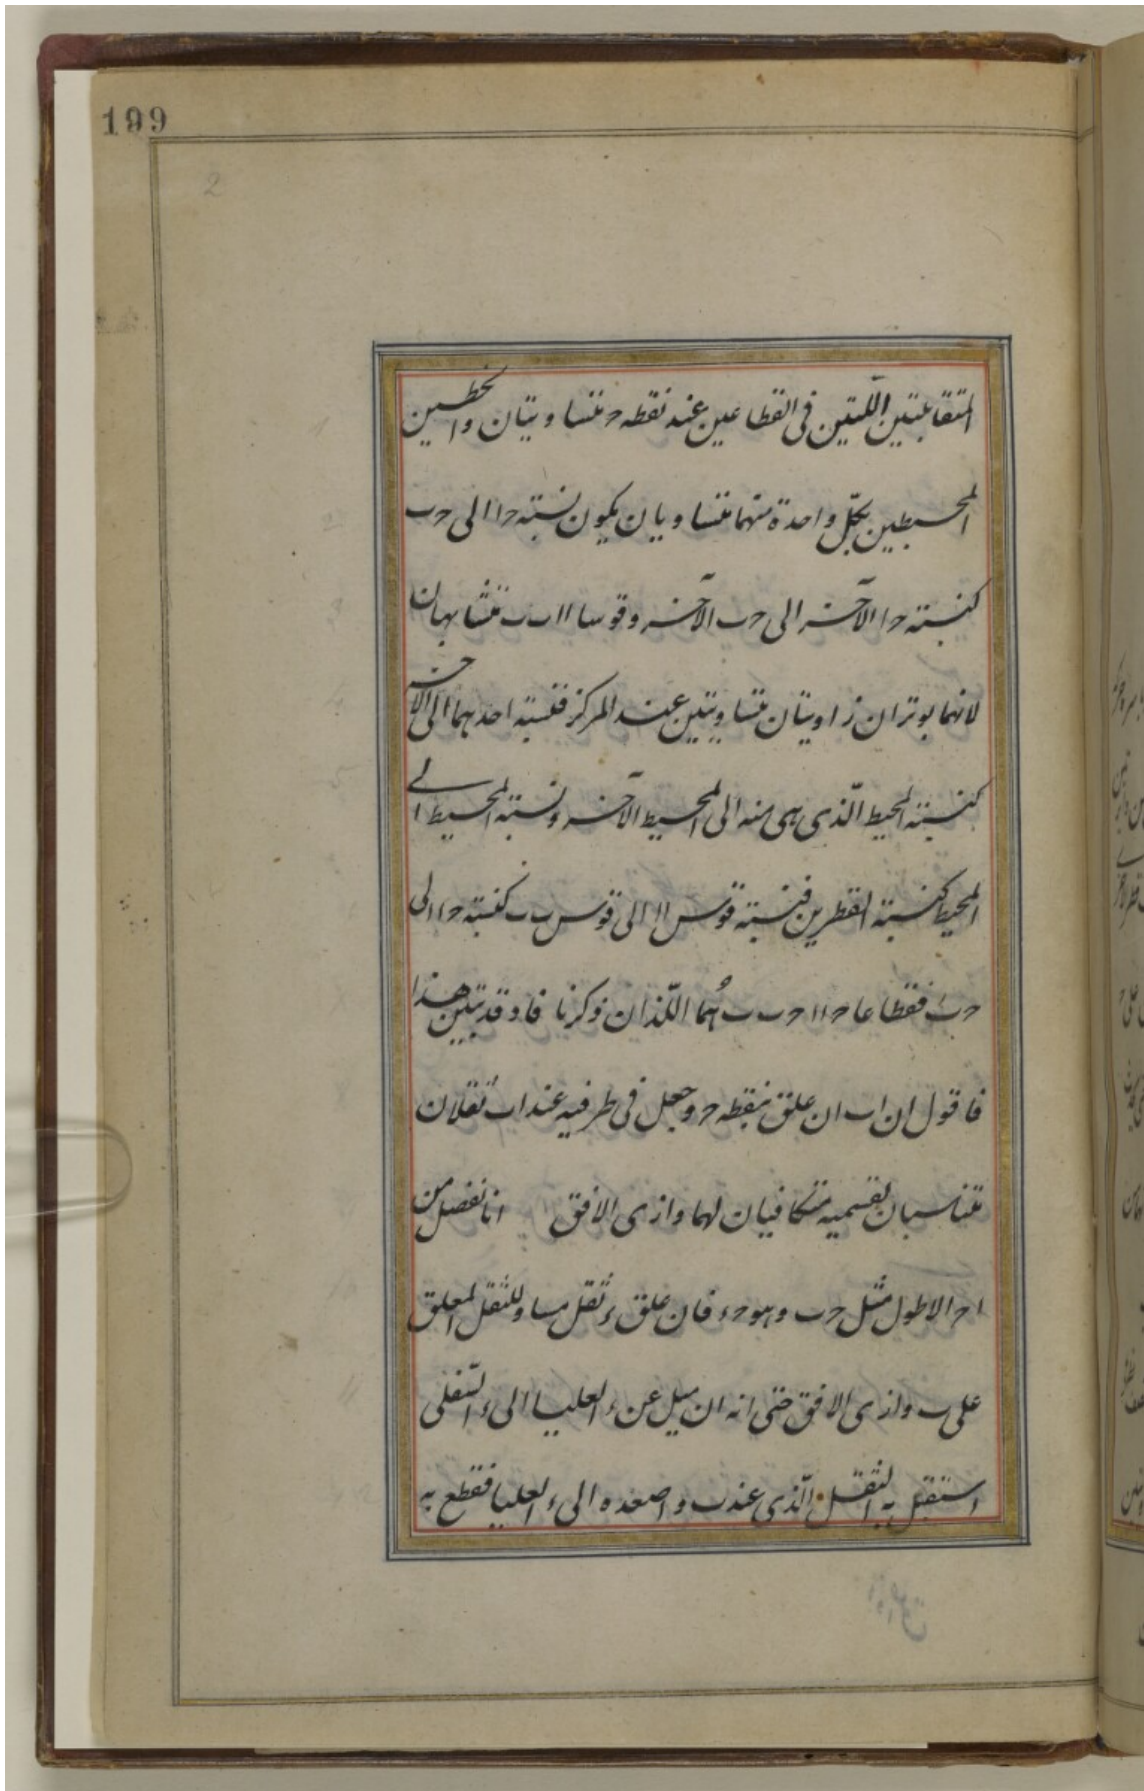 199
2
المتقابلتين اللتين فى القطاعين عند نقطه ح متساويتان والخطين
المحيطين بكل واحدة منهما متساويان يكون نسبته ح ا الى ح ب
كنسبته ح ا الآخر الى ح ب الآخر وقوسا ا ا ب ب متشابهان
لانهما يوتران زاويتان متساويتين عند المركز فنسبته احدهما الى الاخر
كنسبته المحيط الذى هى منه الى المحيط الآخر ونسبته المحيط الے
المحيط كنسبته القطرين فنسبته قوس ا ا الى قوس ب ب كنسبته ح ا الى
ح ب فقطاعا ح ا ا ح ب ب هُما اللّذان ذكرنا فاذ قد تبين هذا
فاقول ان ا ب ان علق بنقطه ح وجعل فى طرفيه عند ا ب ثقلان
متناسبان لقسميه متكافيان لهما وازى الافق انا نفصل من
ا ح الاطول مثل ح ب وهو ح ء فان علق ء ثقل مساو للثقل المعلق
على ب وازى الافق حتى انه ان ميل عن ء العليا الى ء السّفلى
استقبل به الثقل الّذى عند ب واصعده الى ء العليا فقطع به